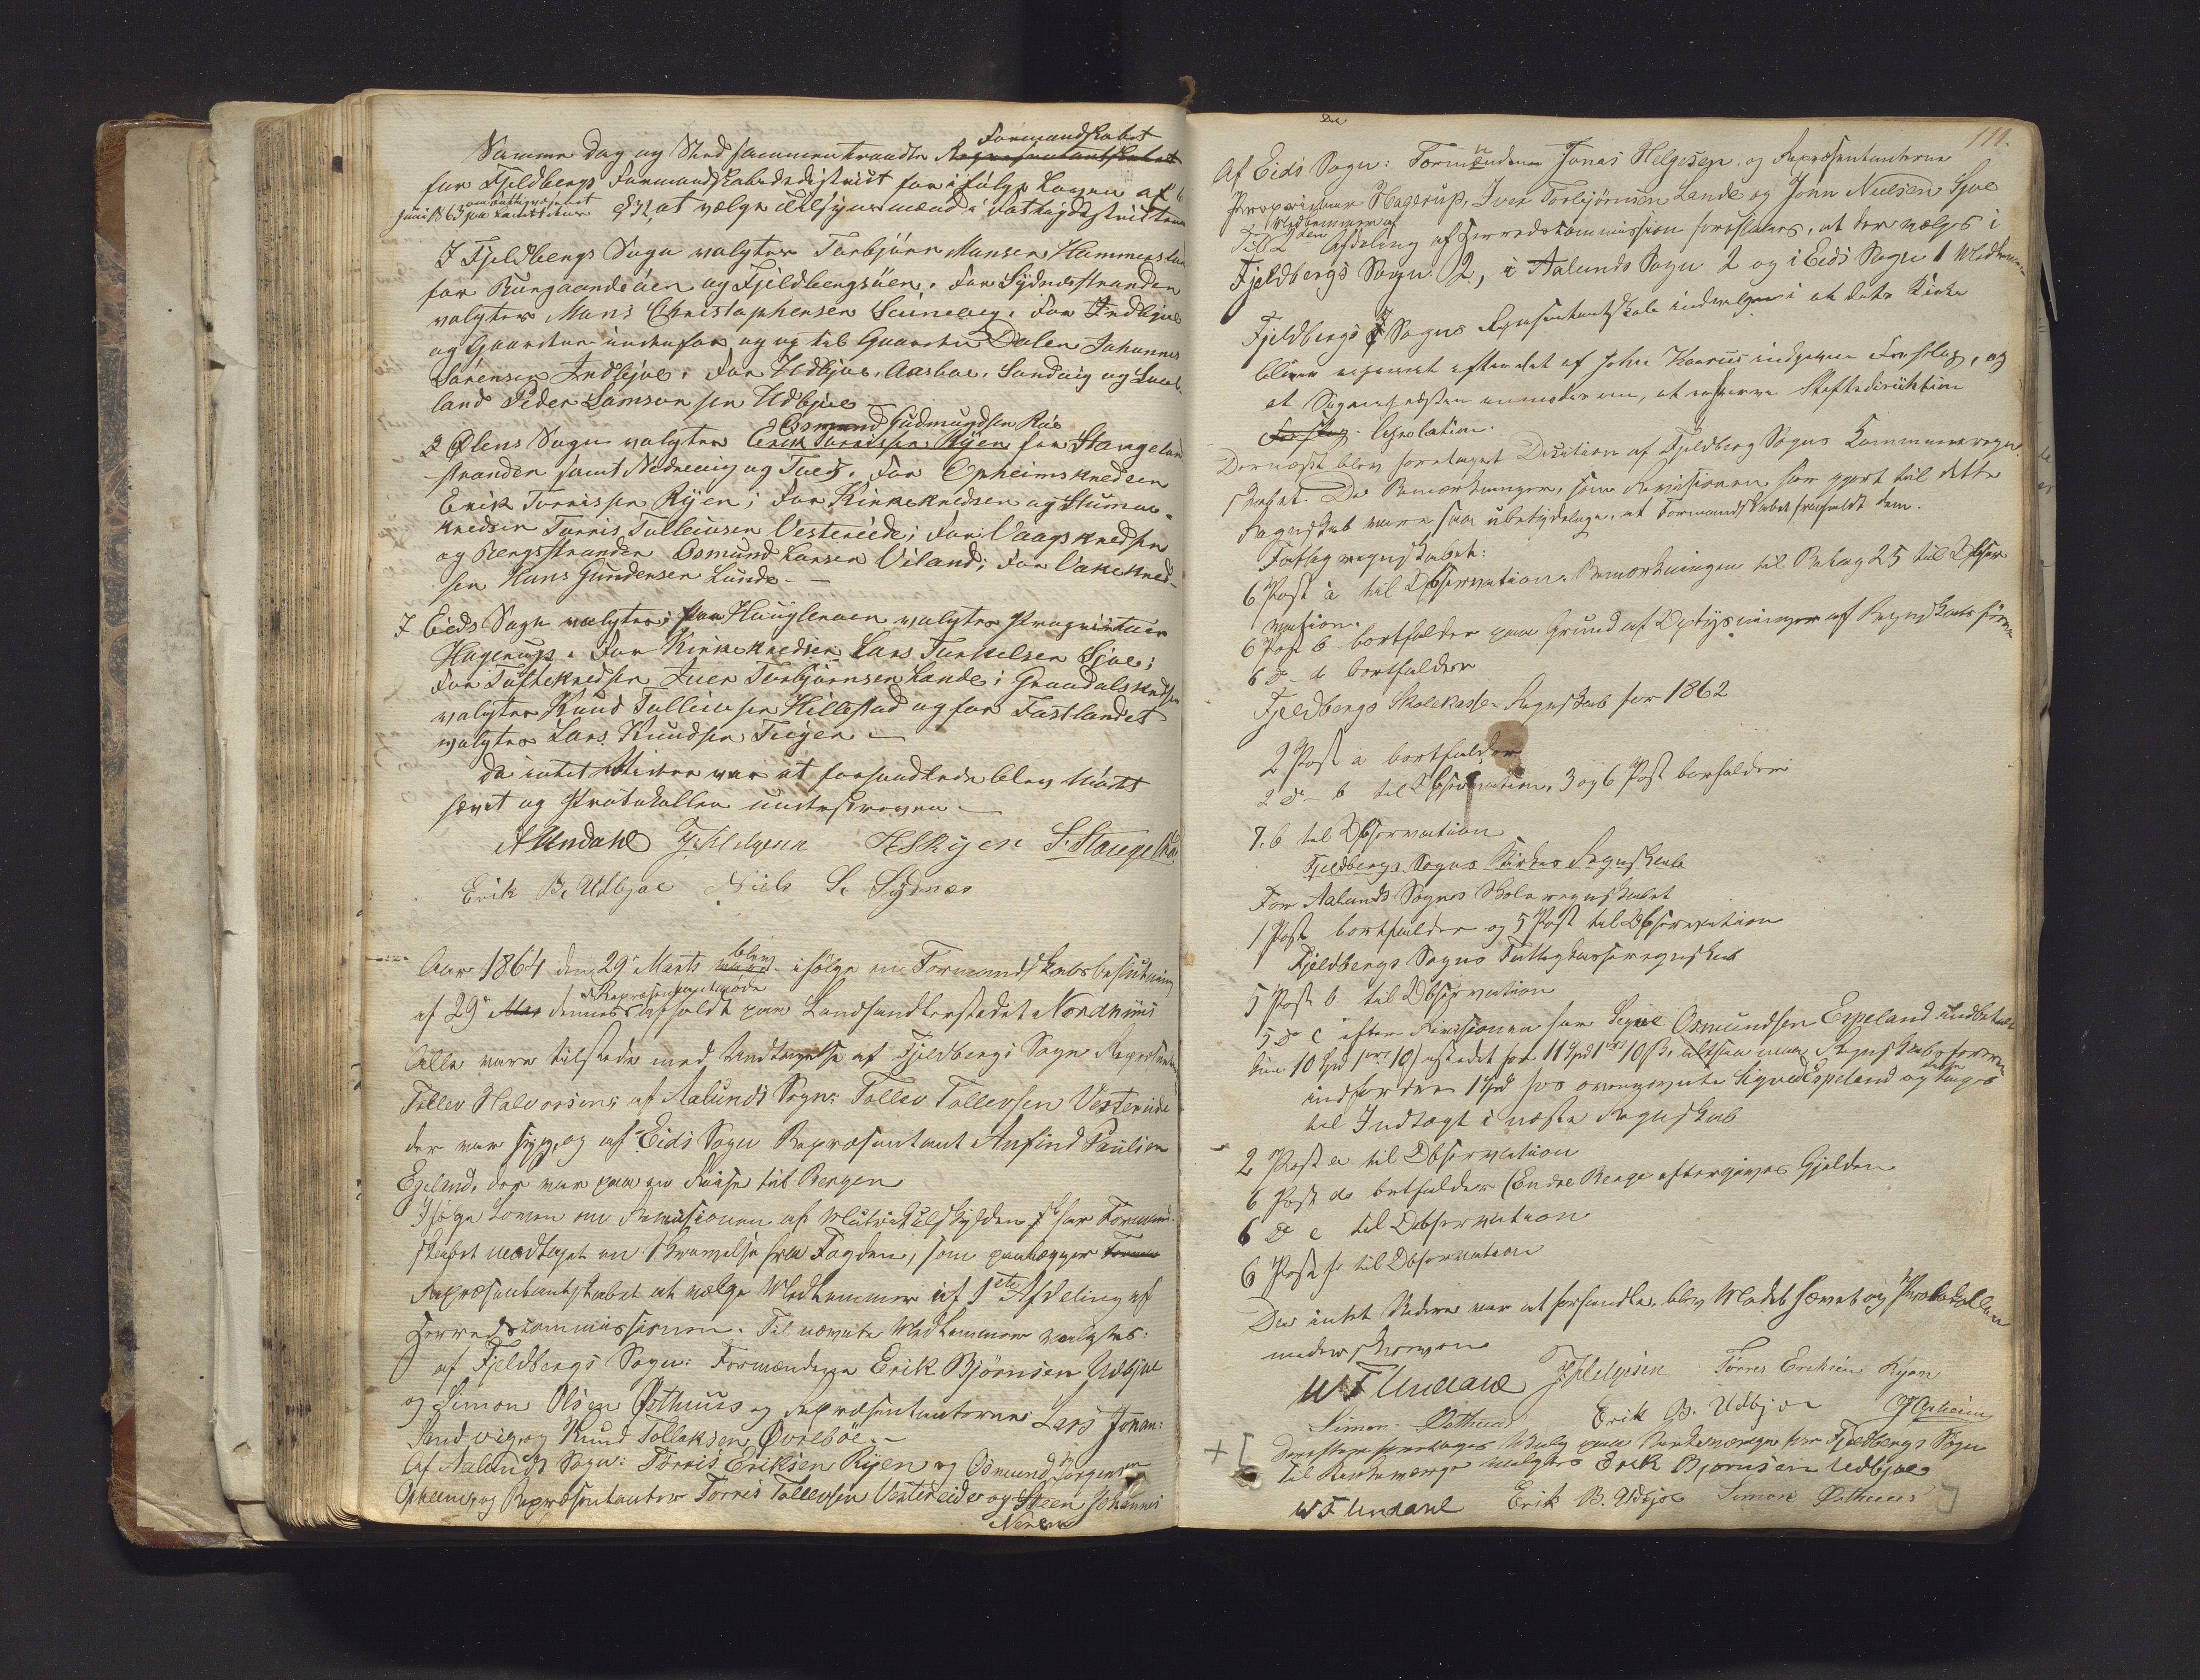 Samme Dag og Sted sammentraadte Repræsentantskabet Formandskabet
for Fjeldbergs Formandskabsdistrict for ifølge Loven af 6
Juni 1863 om Fattigvæsenet paa Landet dens §32, at vælge Tilsynsmænd i Fattigdistrikterne
I Fjeldbergs Sogn valgtes Torbjørn Monsen Hammersland
for Borgundøen og Fjeldbergsøen. For Sydnesstranden
valgtes Mons Christophersen Leinevig. For Indbjoe
og Gaardene indenfor og op til Gaarden Dalen Johannes
Sørensen Indbjoe. For Udbjoe, Aarboe, Sandvig og
land Peder Samsonsen Udbjoe
I Ølens Sogn valgtes Erik Torrissen Ryen Osmund Gudmundsen Røe for Stangeland
stranden samt Nedrevig og Tveit. For Opheimskredsen
Erik Torrissen Ryen; For Kirkekredsen og
kredsen Torris Tollevsen Vestereide; For Vaagskredsen
og Bergsstranden Osmund Larsen Viland; For Vakekred-
sen Hans Gundersen Lunde.
I Eids Sogn valgtes; for Haugleroen valgtes Proprietair
Hagerup. For Kirkekredsen Lars Torkelsen Sjoe;
For Toftekredsen Iver Torbjørnsen Lande; Grandalskredsen
valgtes Knud Tollevsen Hillestad og for Fastlandet
valgtes Lars Knudsen Tvigen
Da intet Videre var at forhandlede blev Mødet
hævet og Protokollen underskreven.
A Undahl J. Helgesen H S Ryen S. Stangeland
Erik B. Udbjoe Niels S. Sydnæs
Aar 1864 den 29de Marts blev ifølge en Formandskabsbeslutning
af 29de dennes Repræsentantmøde afholdt paa Landhandlerstedet Nordhuus
Alle vare tilstede med Undtagelse af Fjeldbergs Sogn Repræsentant
Tollev Halvorsen; af Aalunds Sogn: Tollev Tollevsen Vestereide
der var syg, og af Eids Sogn Repræsentant Anfind Paulsen
Egeland, der var paa en Reise til Bergen
Ifølge Loven om Revisionen af Matrikulskylden har Formand-
skabet modtaget en Skrivelse fra Fogden, som paalægger
Repræsentantskabet at vælge Medlemmer af 1ste Afdeling af
Herredscommissionen. Til nævnte Medlemmer valgtes:
af Fjeldbergs Sogn: Formændene Erik Bjørnsen Udbjoe
og Simon Olsen Østhuus og Repræsentanterne Lars Johan:
Sandvig og Knud Tollaksen Øvrebøe.
Af Aalunds Sogn: Torris Eriksen Ryen og Osmund Jørgensen
Opheim, og Repræsentanter Torris Tollevsen Vestereide og Steen Johannes
Nerem
111.
Af Eids Sogn: Formændene Jonas Helgesen og Repræsentanterne
Proprietær Hagerup, Iver Torbjørnsen Lande og John Nielsen Sjoe
Til Medlemmer af 2den Afdeling af Herredskommission foreslaaes, at der vælges i
Fjeldbergs Sogn 2, i Aalunds Sogn 2 og i Eids Sogn 1 Medlem
Fjeldbergs Sogns Repræsentantskab indvilger i at dets Kirke
bliver repareret efter det af John Kaarus indgivne Forslag, og
at Sognepræsten anmoder om, at erhverve Stiftsdirektion
Forslag. Resolution.
Dernæst blev foretaget Decision af Fjeldberg Sogns Kommuneregn-
skabet. De Bemærkninger, som Revisionen har gjort til dette
Regnskab vare saa ubetydelige, at Formandskabet frafaldt dem.
Fattigregnskabet:
6 Post a til Observation. Bemærkningen til Bilag 25 til Obser
vation.
6 Post b bortfalder paa Grund af Oplysninger af Regnskabsføreren
6 D - d bortfalder
Fjeldbergs Skolekasse Regnskab for 1862
2 Post a bortfalder
2 D - b til Observation, 3 og 6 Post borfalder
7. b til Observation
Fjeldbergs Sogns Kirkes Regnskab
For Aalunds Sogns Skoleregnskabet
1 Post bortfalder og 5 Post til Observation
Fjeldbergs Sogns Fattigkasseregnskab
5 Post b til Observation
5 D c efter Revisionen har Sigve Osmundsen Espeland indbetalt
kun 10 Spd 1 ort 10 β istedet for 11 Spd 1 ort 10 β, altsaa maa Regnskabsføreren
indfordre 1 Spd hos ovennævnte Sigved Espeland og tages
til Indtægt i næste Regnskab
2 Post a til Observation
6 Post d bortfalder (Endre Berge eftergives Gjelden
6 D e til Observation
6 Post f til Observation
Da intet Videre var at forhandle, blev Mødet hævet og Protokollen
underskreven
W F Undahl J Helgesen Torres Eriksen Ryen
Simon Østhuus Erik B. Udbjoe O J Opheim
+ [ Derefter foretoges Valg paa Kirkeværge for Fjeldbergs Sogn
Til Kirkeværge valgtes Erik Bjørnsen Udbjoe
W F Undahl Erik B. Udbjoe Simon Østhuus ]